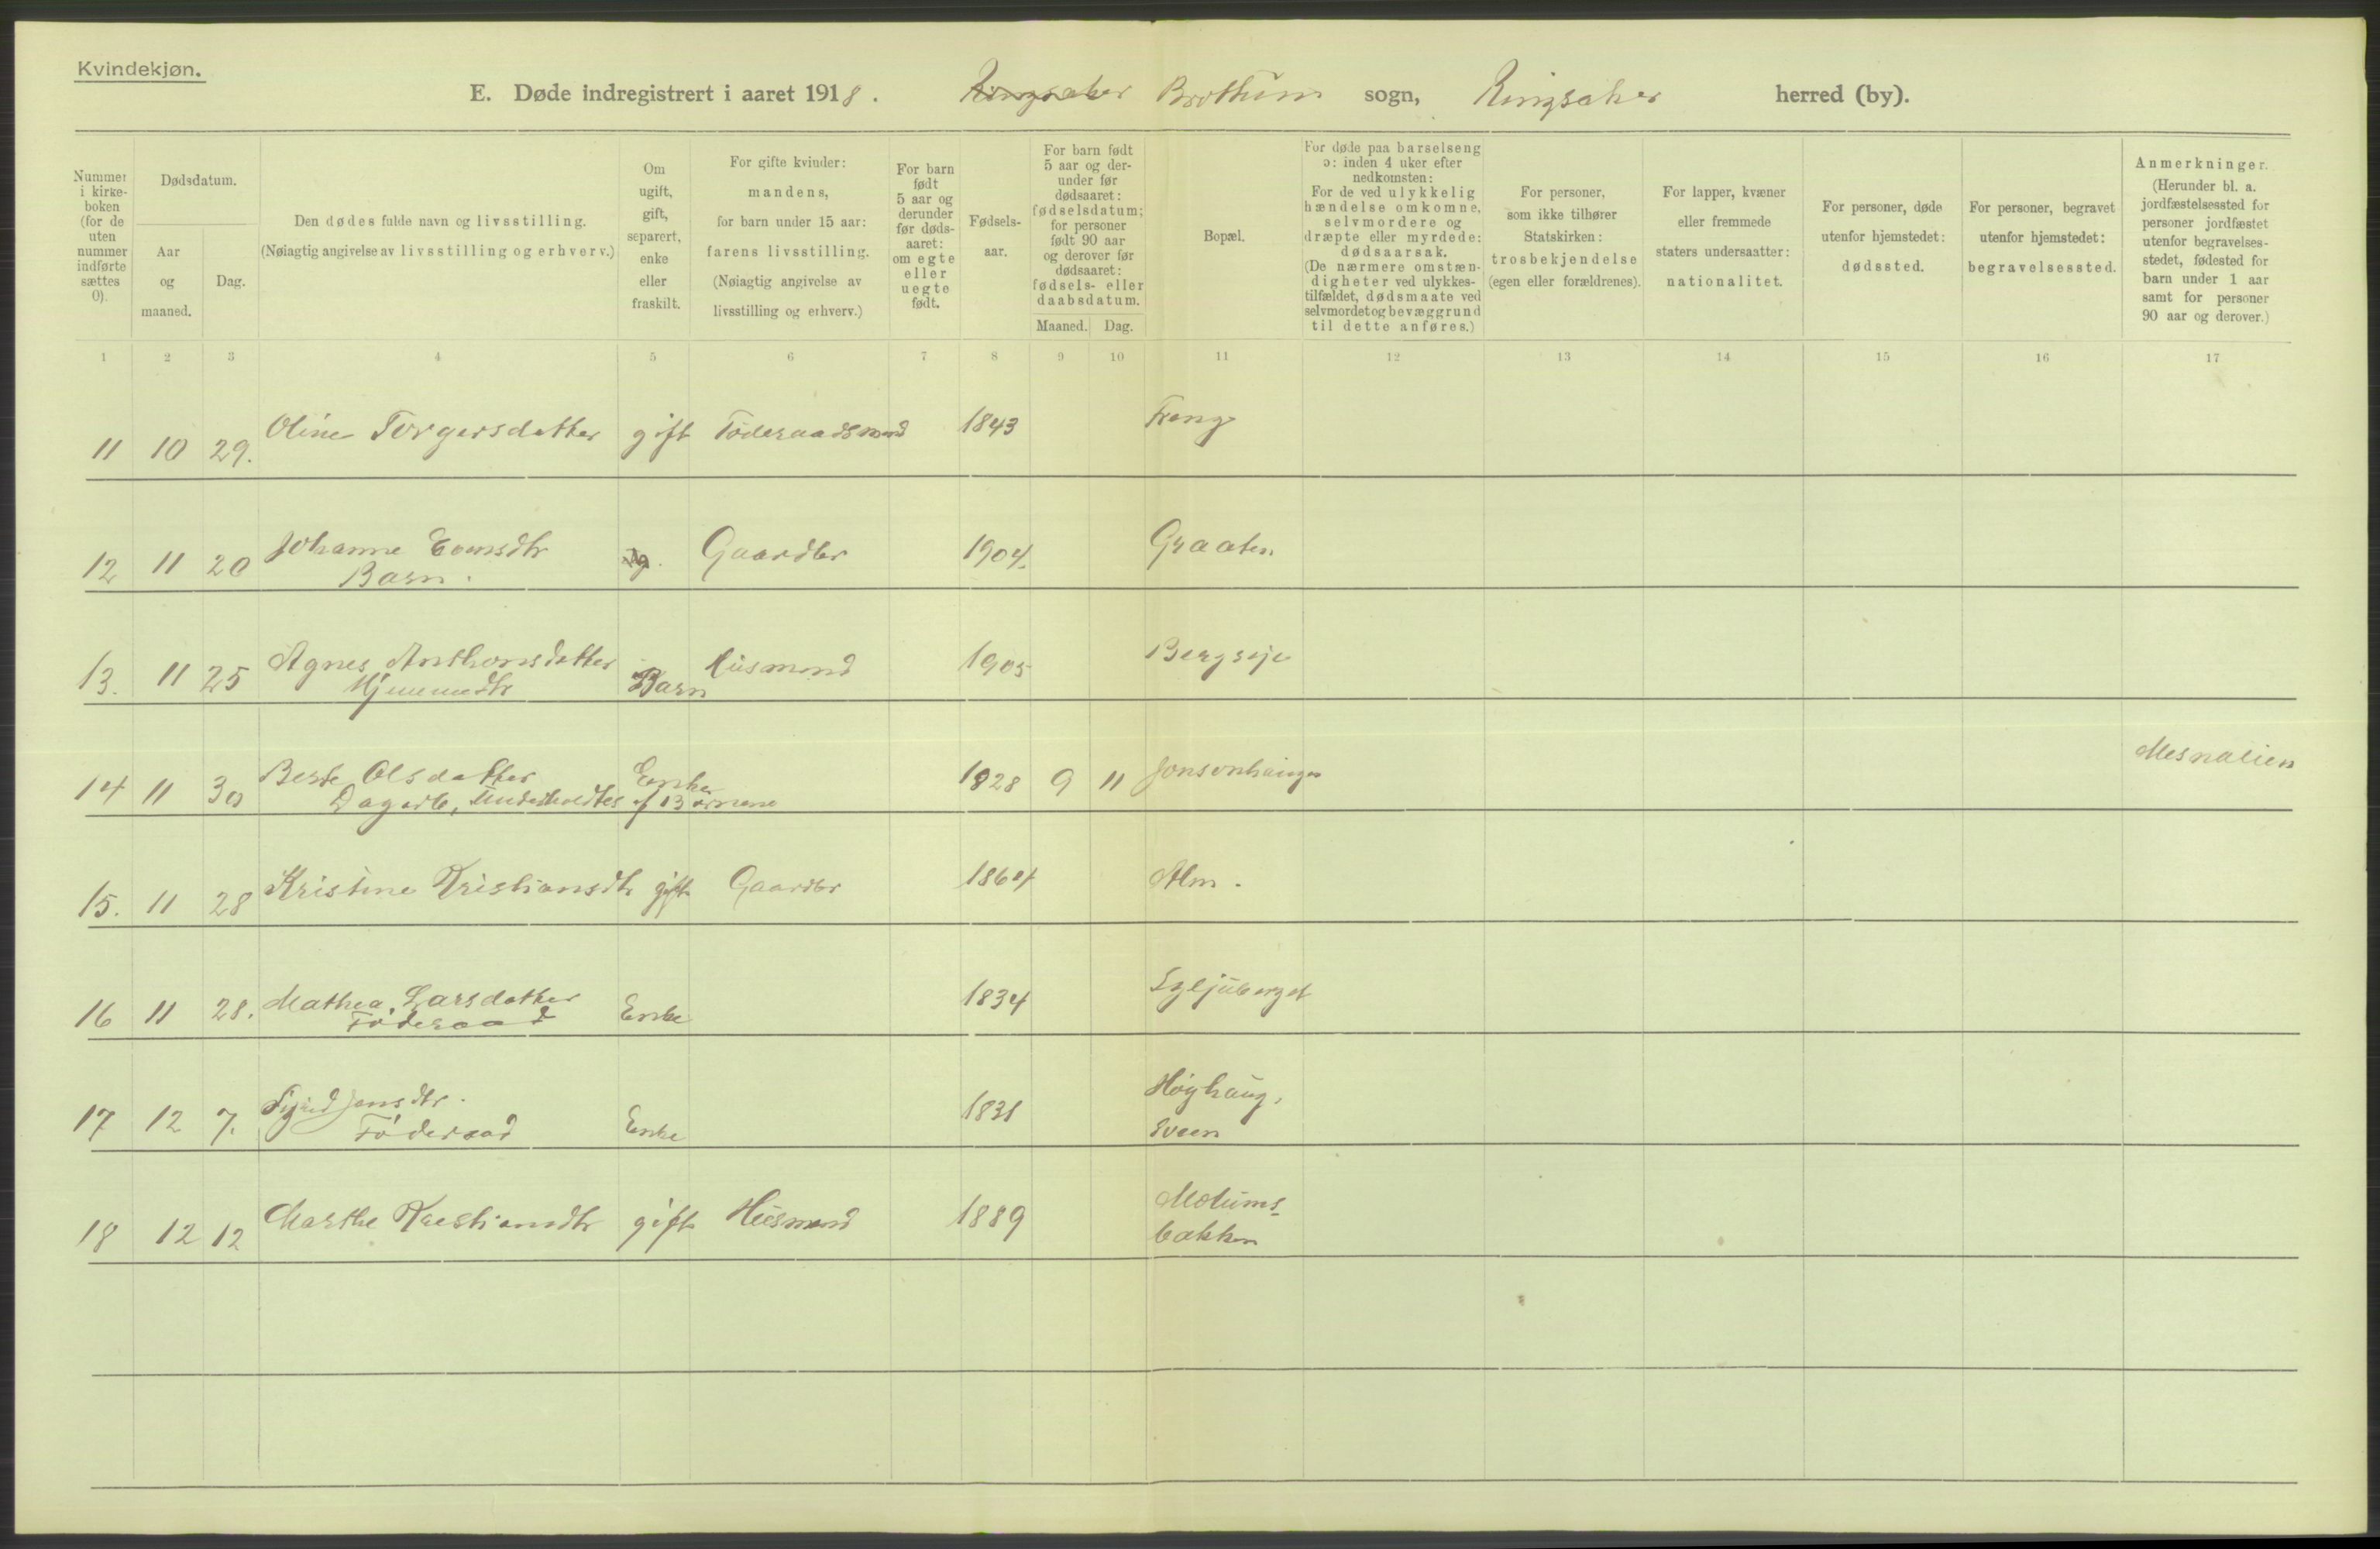 Kvindekjøn.
E. Døde indregistrert i aaret 1918. Ringsaker Brøttum sogn, Ringsaker herred (by).
Nummer i kirke-boken (for de uten nummer indførte sættes 0).
Dødsdatum.
Aar og maaned.
Dag.
Den dødes fulde navn og livsstilling.
(Nøiagtig angivelse av livsstilling og erhverv.)
Om ugift, gift, separert, enke eller fraskilt.
For gifte kvinder: mandens, for barn under 15 aar: farens livsstilling. (Nøiagtig angivelse av livsstilling og erhverv.)
For barn født 5 aar og derunder før døds-aaret: om egte eller uegte født.
Fødsels-aar.
For barn født 5 aar og der-under før dødsaaret: fødselsdatum; for personer født 90 aar og derover før dødsaaret: fødsels- eller daabsdatum.
Maaned. Dag.
Bopæl.
For døde paa barselseng ɔ: inden 4 uker efter nedkomsten: For de ved ulykkelig hændelse omkomne, selvmordere og dræpte eller myrdede: dødsaarsak. (De nærmere omstæn-digheter ved ulykkes-tilfældet, dødsmaate ved selvmordet og bevæggrund til dette anføres.)
For personer, som ikke tilhører Statskirken: trosbekjendelse (egen eller forældrenes).
For lapper, kvæner eller fremmede staters undersaatter: nationalitet.
For personer, døde utenfor hjemstedet: dødssted.
For personer, begravet utenfor hjemstedet: begravelsessted.
Anmerkninger. (Herunder bl. a. jordfæstelsessted for personer jordfæstet utenfor begravelses-stedet, fødested for barn under 1 aar samt for personer 90 aar og derover.)
1 2 3 4 5 6 7 8 9 10 11 12 13 14 15 16 17
11 10 29. Oline Torgersdatter gift Föderaadsmand 1843 Freng
12 11 20 Johanne Evensdtr ug. Gaardbr 1904 Graaten
Barn.
13. 11 25 Agnes Anthonsdatter Husmand 1905 Bergseje
Barn
14 11 30 Berte Olsdatter Enke 1828 9 11 Jonsenhaugen Mesnalien
Dagarb, Underholdtes af Börnene
15. 11 28 Kristine Kristiansdtr gift Gaardbr 1864 Alm.
16 11 28. Mathea Larsdatter Enke 1834 Sveljuberget
Föderaad
17 12 7. Sigrid Jonsdtr. Enke 1831 Høghaug,
Föderaad Sveen
18 12 12 Marthe Kristiansdtr gift Husmand 1889 Molums-
bakken